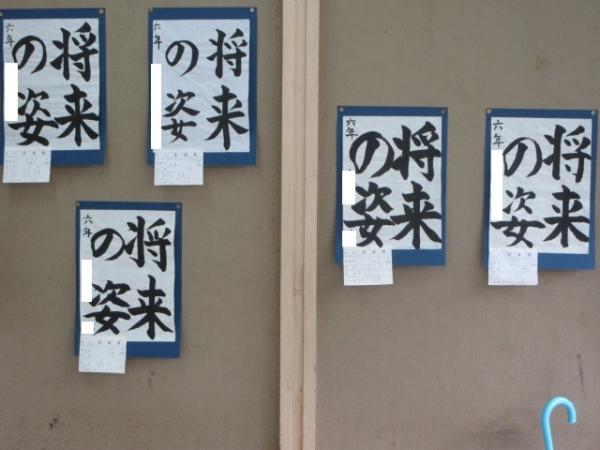 将来
の姿
六年
将来
の姿
六年
将来
の姿
六年
将来
の姿
六年
将来
の姿
六年